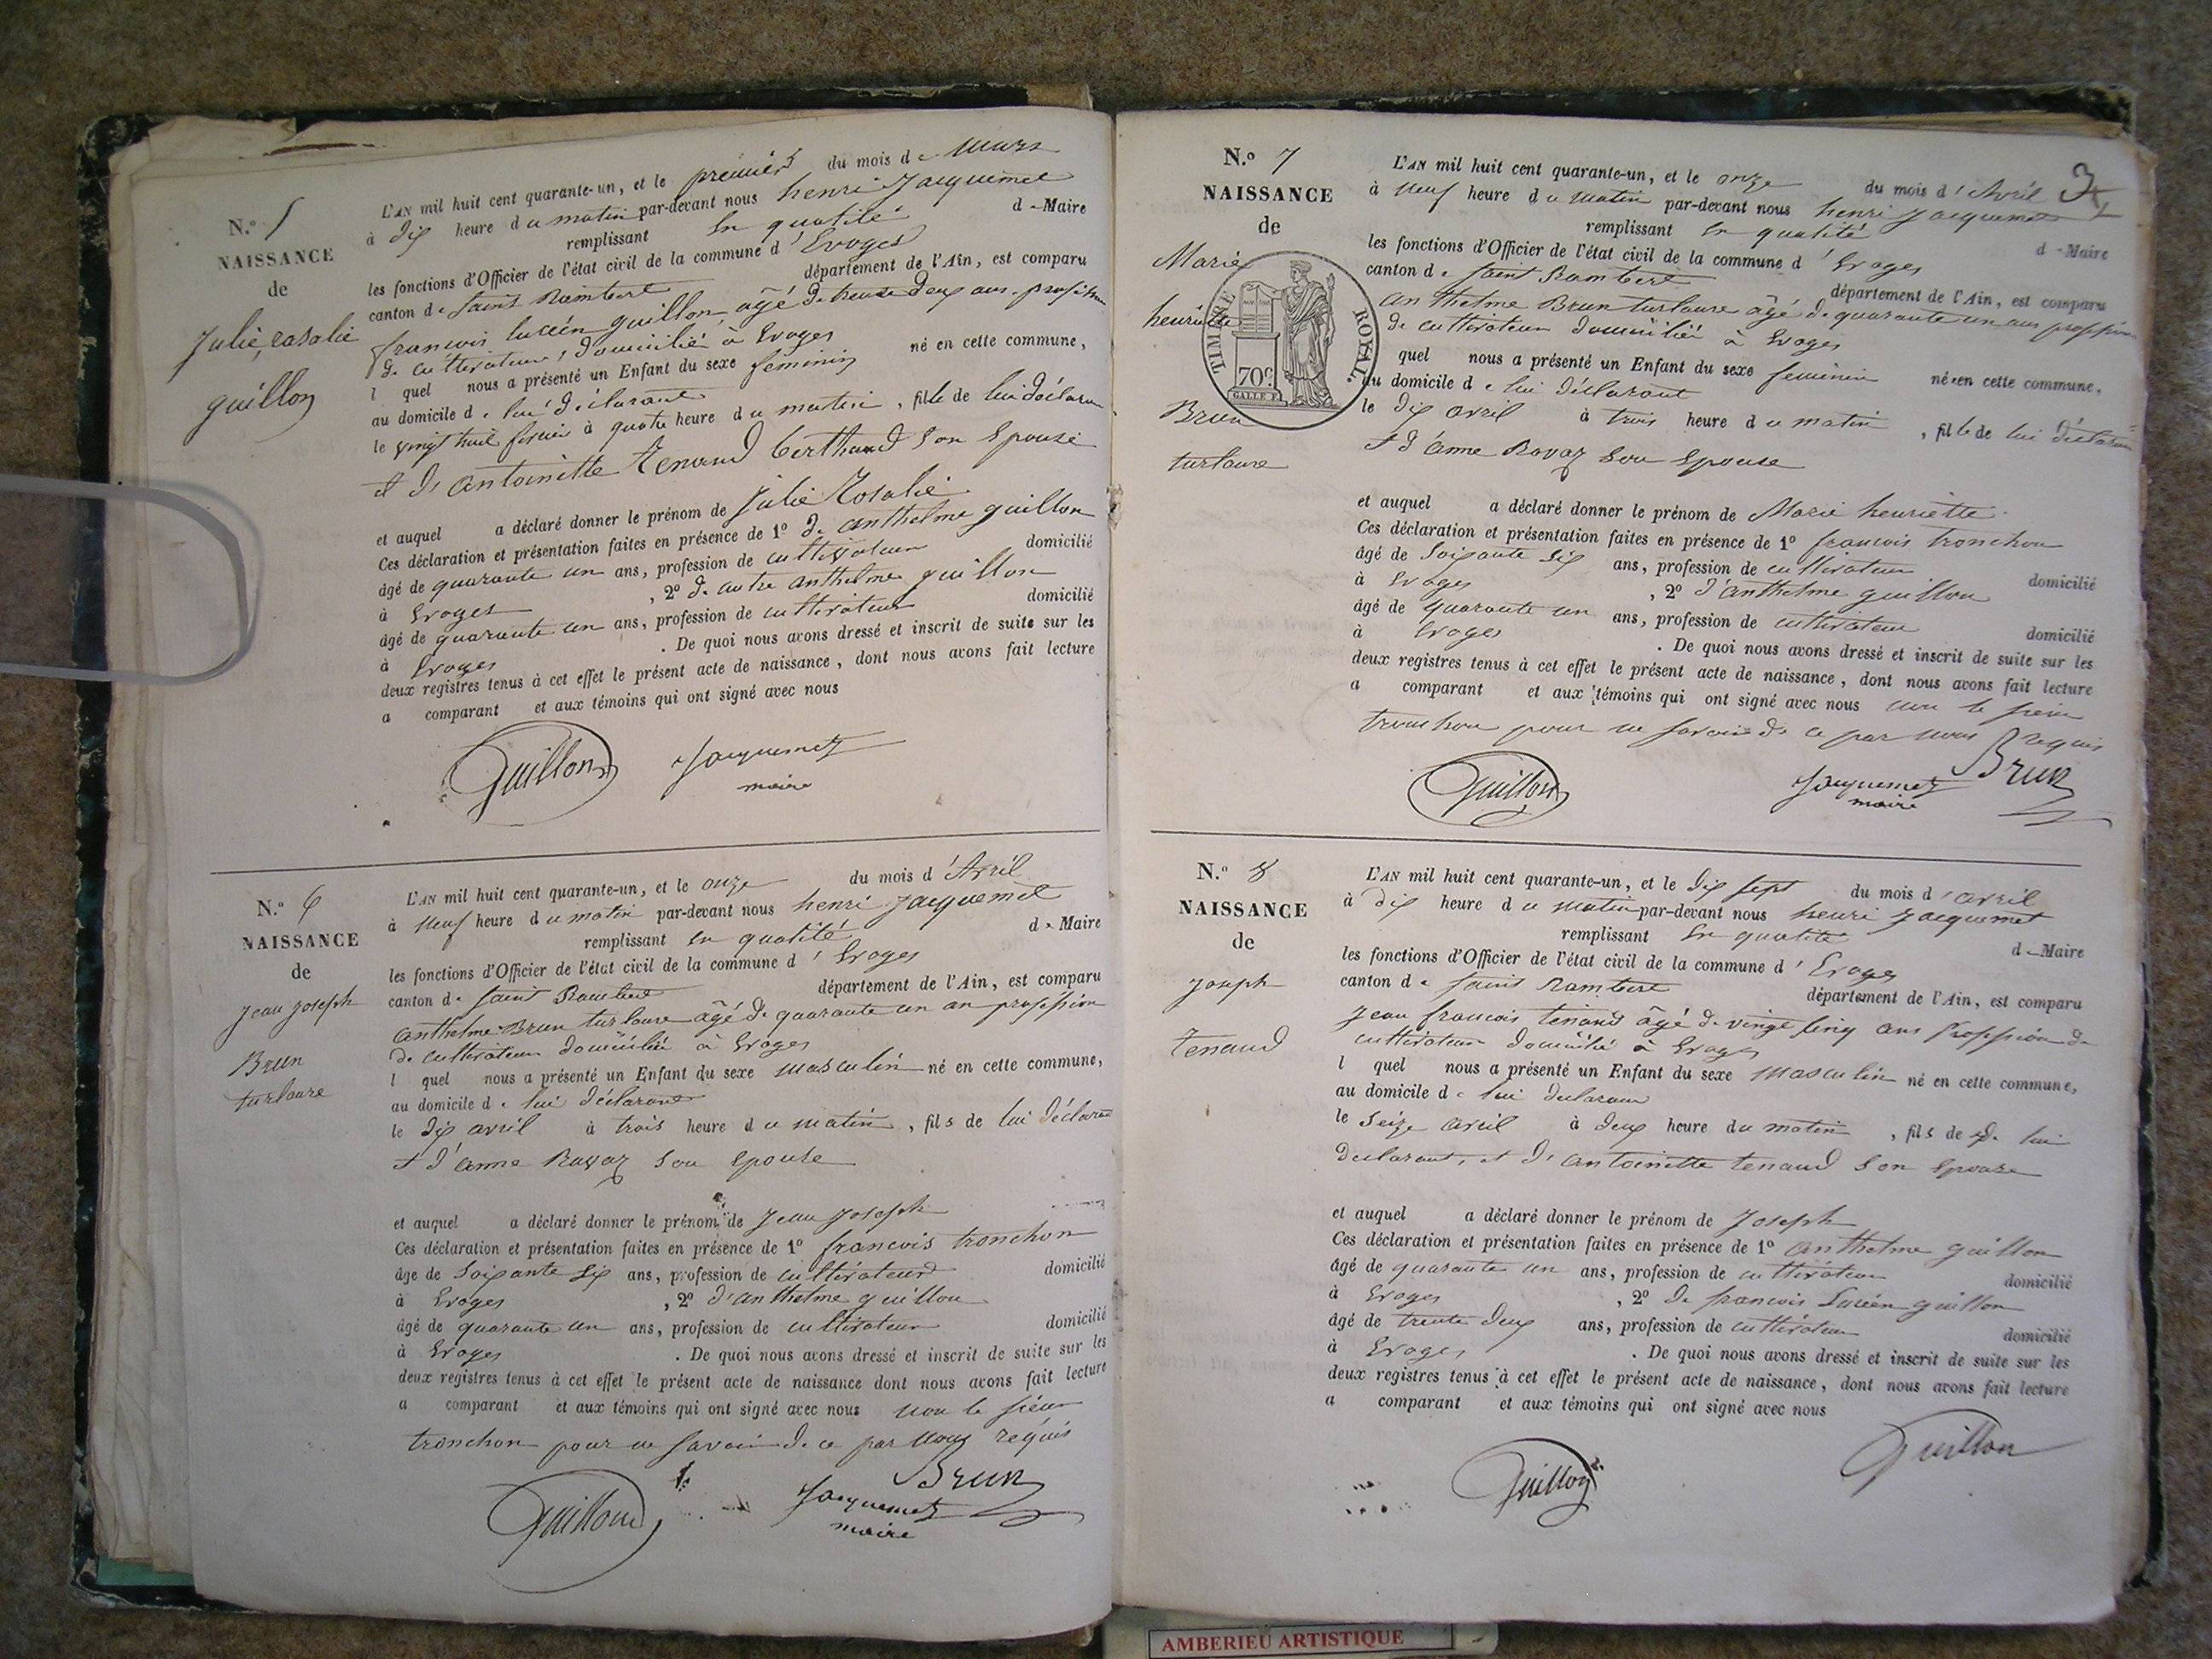 N.° 5
NAISSANCE
de
Julie, rosalie
guillon
L'AN mil huit cent quarante-un, et le premier du mois de Mars
à dix heure du matin par-devant nous henri Jacquemet
remplissant en qualité de Maire
les fonctions d'Officier de l'état civil de la commune d'Evoges
canton de Saint Rambert département de l'Ain, est comparu
francois lucien guillon, âgé de trente deux ans, profession
de cultivateur, domicilié à Evoges
l quel nous a présenté un Enfant du sexe féminin né en cette commune,
au domicile de lui déclarant
le vingt huit février à quatre heure du matin, fille de lui déclarant
et d'antoinette Tenand berthaud son Epouse
et auquel a déclaré donner le prénom de Julie Rosalie
Ces déclaration et présentation faites en présence de 1° de anthelme guillon
âgé de quarante un ans, profession de cultivateur domicilié
à Evoges, 2° de autre anthelme guillon
âgé de quarante un ans, profession de cultivateur domicilié
à Evoges. De quoi nous avons dressé et inscrit de suite sur les
deux registres tenus à cet effet le présent acte de naissance, dont nous avons fait lecture
a comparant et aux témoins qui ont signé avec nous
Guillon Jacquemet
maire
N.° 6
NAISSANCE
de
Jean Joseph
Brun
turlaure
L'AN mil huit cent quarante-un, et le onze du mois d'Avril
à neuf heure du matin par-devant nous henri Jacquemet
remplissant en qualité de Maire
les fonctions d'Officier de l'état civil de la commune d'Evoges
canton de Saint Rambert département de l'Ain, est comparu
anthelme Brun turlaure âgé de quarante un an profession
de cultivateur domicilié à Evoges
l quel nous a présenté un Enfant du sexe masculin né en cette commune,
au domicile de lui déclarant
le dix avril à trois heure du matin, fils de lui déclarant
et d'anne Ravaz son Epouse
et auquel a déclaré donner le prénom de Jean Joseph
Ces déclaration et présentation faites en présence de 1° francois tronchon
âge de soixante six ans, profession de cultivateur domicilié
à Evoges, 2° d'anthelme guillon
âgé de quarante un ans, profession de cultivateur domicilié
à Evoges. De quoi nous avons dressé et inscrit de suite sur les
deux registres tenus à cet effet le présent acte de naissance dont nous avons fait lecture
a comparant et aux témoins qui ont signé avec nous non le sieur
tronchon pour ne savoir de ce par nous réquis
Brun
Guillon Jacquemet
maire
3
N.° 7
NAISSANCE
de
Marie
henriette
Brun
turlaure
TIMBRE ROYAL.
70c.
L'AN mil huit cent quarante-un, et le onze du mois d'Avril
à neuf heure du matin par-devant nous henri Jacquemet
remplissant en qualité de Maire
les fonctions d'Officier de l'état civil de la commune d'Evoges
canton de Saint Rambert département de l'Ain, est comparu
anthelme Brun turlaure âgé de quarante un ans profession
de cultivateur domicilié à Evoges
quel nous a présenté un Enfant du sexe féminin née en cette commune.
au domicile de lui déclarant
le dix avril à trois heure du matin, fille de lui déclarant
et d'anne Ravaz son Epouse
et auquel a déclaré donner le prénom de Marie henriette
Ces déclaration et présentation faites en présence de 1° francois tronchon
âgé de soixante six ans, profession de cultivateur domicilié
à Evoges, 2° d'anthelme guillon
âgé de quarante un ans, profession de cultivateur domicilié
à Evoges. De quoi nous avons dressé et inscrit de suite sur les
deux registres tenus à cet effet le présent acte de naissance, dont nous avons fait lecture
a comparant et aux témoins qui ont signé avec nous non le sieur
tronchon pour ne savoir de ce par nous requis
Guillon Jacquemet Brun
maire
N.° 8
NAISSANCE
de
Joseph
Tenand
L'AN mil huit cent quarante-un, et le dix sept du mois d'avril
à dix heure du matin par-devant nous henri Jacquemet
remplissant en qualité de Maire
les fonctions d'Officier de l'état civil de la commune d'Evoges
canton de Saint Rambert département de l'Ain, est comparu
Jean francois tenand âgé de vingt cinq ans profession de
cultivateur domicilié à Evoges
l quel nous a présenté un Enfant du sexe masculin né en cette commune,
au domicile de lui déclarant
le seize avril à deux heure du matin, fils de de lui
déclarant, et d'antoinette tenand son Epouse
et auquel a déclaré donner le prénom de Joseph
Ces déclaration et présentation faites en présence de 1° anthelme guillon
âgé de quarante un ans, profession de cultivateur domicilié
à Evoges, 2° de francois Lucien guillon
âgé de trente deux ans, profession de cultivateur domicilié
à Evoges. De quoi nous avons dressé et inscrit de suite sur les
deux registres tenus à cet effet le présent acte de naissance, dont nous avons fait lecture
a comparant et aux témoins qui ont signé avec nous
Guillon Guillon
AMBERIEU ARTISTIQUE